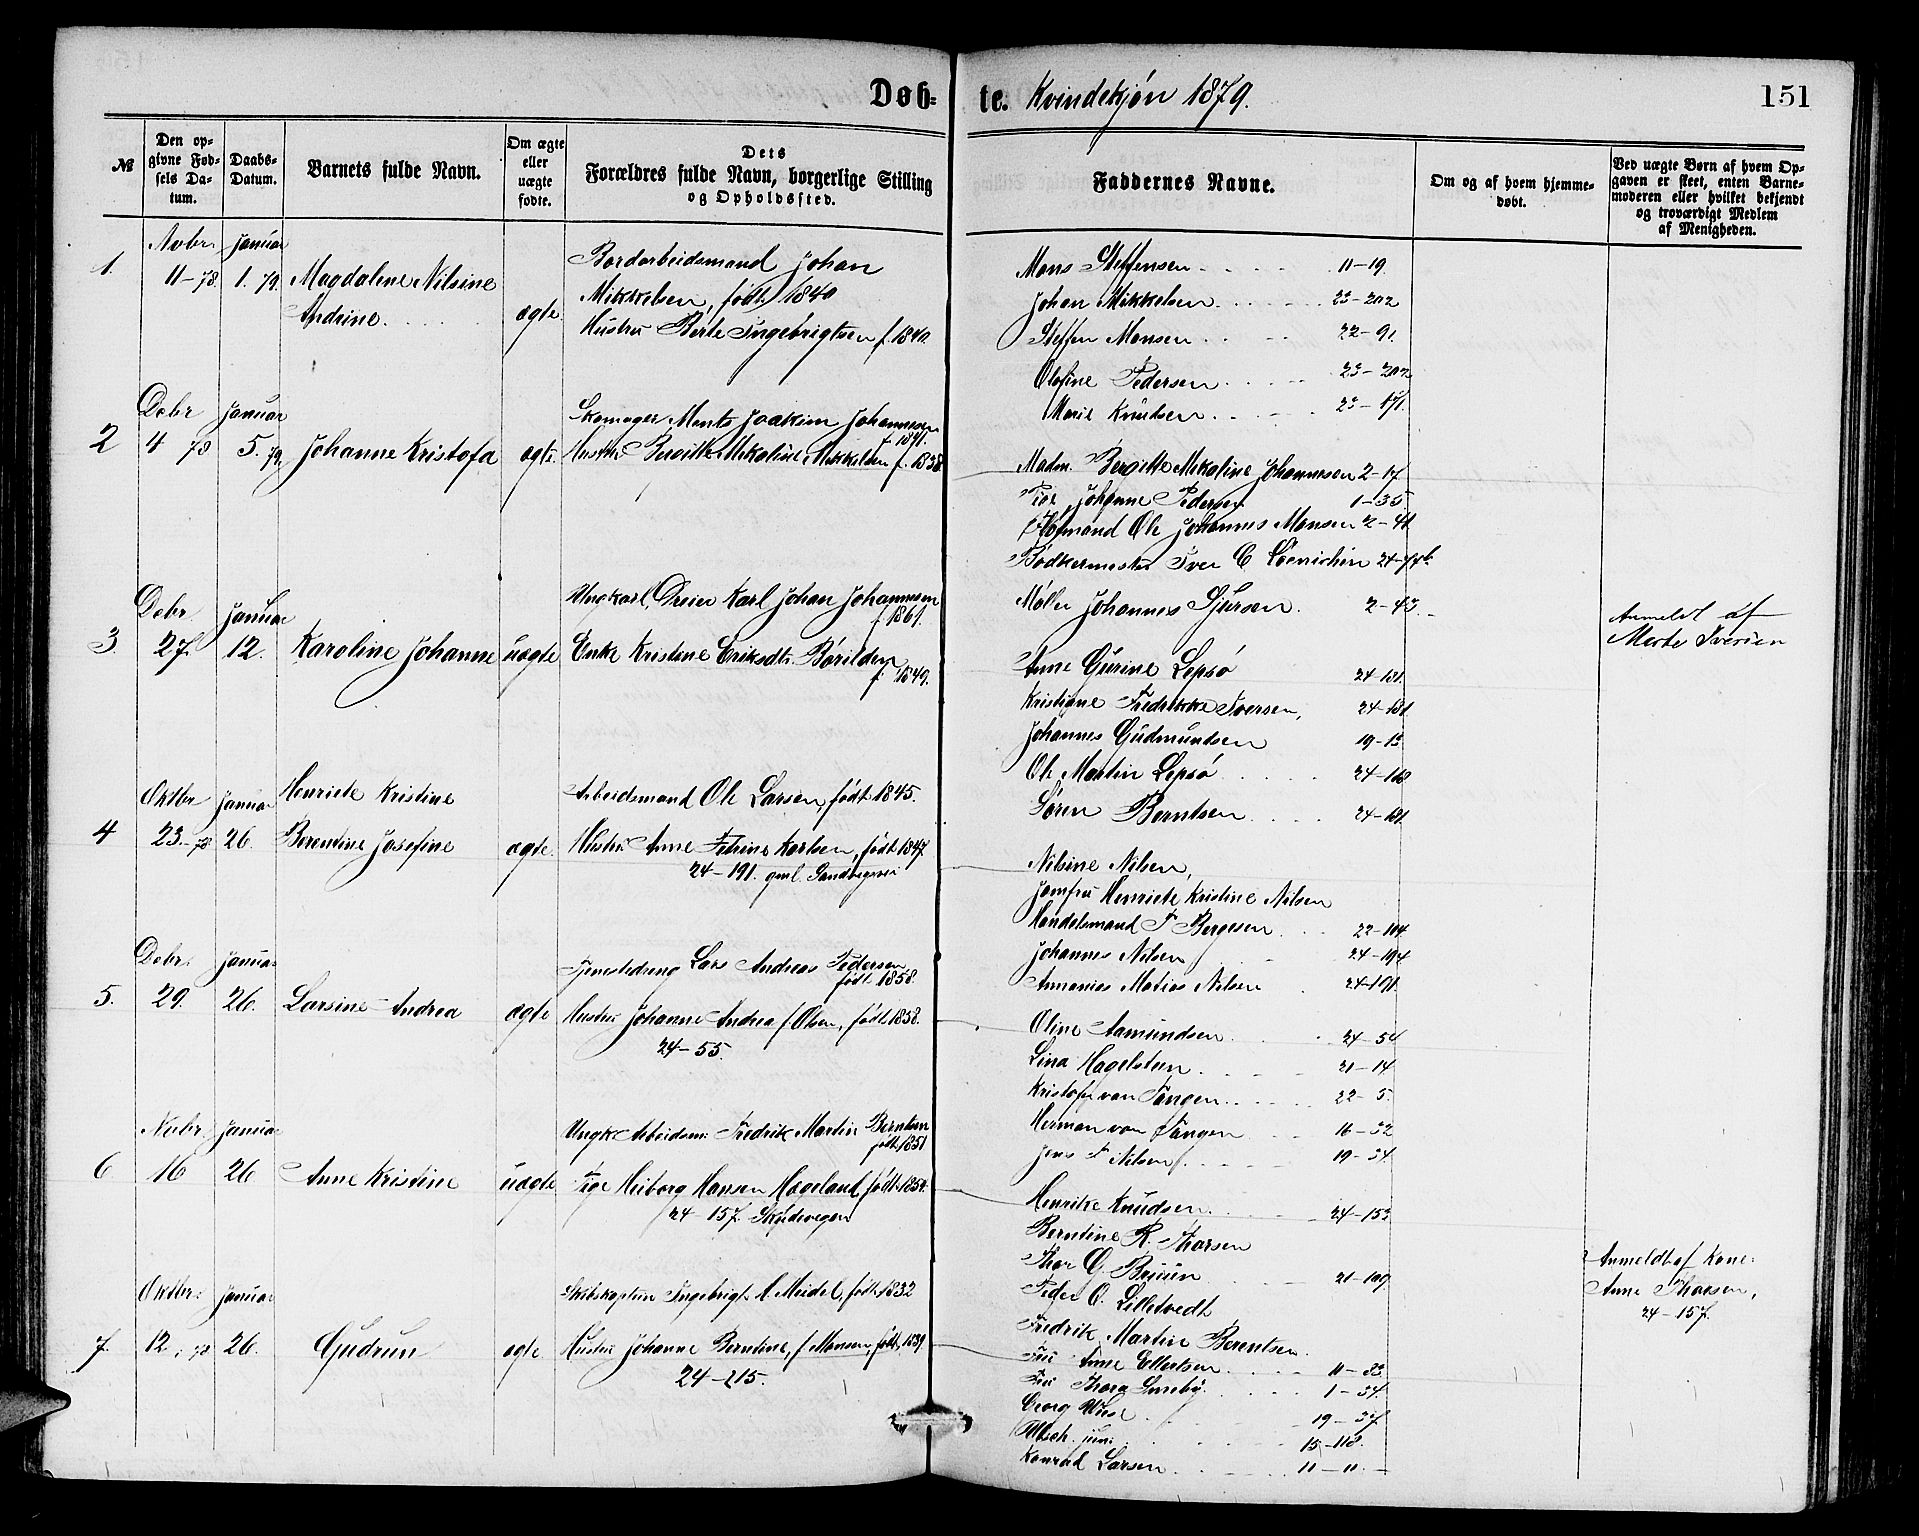 Døb-
te. Kvindekjøn 1879.
151
№
Den op-
givne Fød-
sels Da-
tum.
Daabs-
Datum.
Barnets fulde Navn.
Om ægte
eller
uægte
fødte.
Dets
Forældres fulde Navn, borgerlige Stilling
og Opholdssted.
Faddernes Navne.
Om og af hvem hjemme-
døbt.
Ved uægte Børn af hvem Op-
gaven er skeet, enten Barne-
moderen eller hvilket bekjendt
og troværdigt Medlem
af Menigheden.
1.
Novbr.
11-78
Januar
1. 79.
Magdalene Nilsine
Andrine.
ægte
Bordarbeidsmand Johan
Mikkelsen, født 1840
Hustru Berte Ingebrigtsen f. 1840.
Mons Steffensen 11-19.
Johan Mikkelsen 23-202
Steffen Monsen 22-91.
Olefine Pedersen 23-202
Marie Knudsen 23-171.
2
Debr
4 78
Januar
5. 79.
Johanne Kristofa
ægte.
Skomager Monts Joakim Johannesen
f. 1841.
Hustru Bergitte Mikaline Mikkelsen f. 1838
Madm. Bergitte Mikaline Johannesen 2-17.
Pige Johanne Pedersen 1-35
Ole Johannes Monsen 2-41
Bødkermester Iver C 24-74b.
Møller Johannes Sjursen. 2-43.
3.
Debr.
27.
Januar
12.
Karoline Johanne
uægte
Ungkarl, Dreier Karl Johan Johannesen
f. 1861.
Enke Kristine Eriksdtr.
f. 1849.
Anne Gurine Lepsø 24-131.
Kristiane Fredrikke Iversen, 24-131
Johannes Gudmundsen 19-15
Ole Martin Lepsø 24-168
Søren Berntsen 24-131.
Anmeldt af
Merte Iversen
4
Oktbr
23.-78
Januar
26.
Henriete Kristine
Berentine Josefine
ægte.
Arbeidsmand Ole Larsen, født 1845.
Hustru Anne Petrine Karlsen, født 1847.
24-191. gml. Sandvigsvei
Nilsine Nilsen,
Jomfru Henriete Kristine Nilsen
Handelsmand P Bergesen 22-104.
Johannes Nilsen 24-194
Annanias Matias Nilsen 24-191.
5.
Debr.
29.
Januar
26.
Larsine Andrea
ægte
Tjenestedreng Lars Andreas Pedersen
født 1858.
Hustru Johanne Andrea f. Olsen, født 1858.
24-55.
Oline Aamundsen 24-54
Lina Hagelsteen 21-14
Kristofa van Tangen 22-5.
Herman van Tangen 16-32
Jens P Nilsen 19-34
6
Novbr.
16
Januar
26
Anne Kristine
uægte
Ungk. Arbeidsm: Fredrik Martin Berntsen
født 1851
Pige Heiborg Hansen Hageland født 1854.
24-157. Skudevegen
Henrike Knudsen. 24-153
Berntine R. Thorsen
Thor G. Bruun 21-109
Peder O. Lilletvedt
Fredrik Martin Berentsen.
Anmeldt af Kone
Anne Thorsen,
24-157.
7.
Oktbr.
12. 78
Januar
26.
Gudrun
ægte
Skibskaptein Ingebrigt A Meidel, født 1832
Hustru Johanne Berntine, f Monsen, født 1839.
24-215.
Fru Anne Ellertsen 11-33.
Fru Thora 1-34.
Georg Wiese 19-37.
jun. 15-118.
Konrad Larsen 11-11.